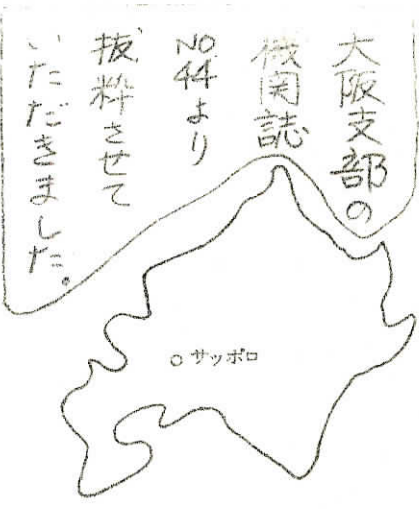 大阪支部の
機関誌
NO44より
抜粋させて
いただきました。
サッポロ